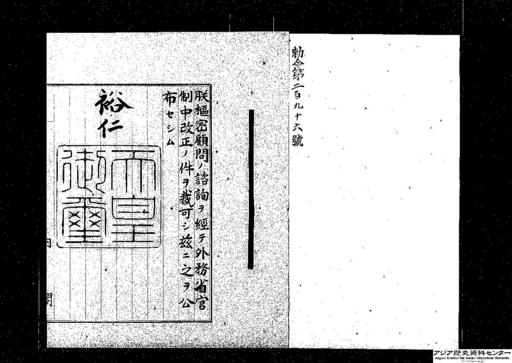 勅令第二百九十六號
朕樞密顧問ノ諮詢ヲ經テ外務省官
制中改正ノ件ヲ裁可シ茲ニ之ヲ公
布セシム
裕仁
天皇
御璽
アジア歴史資料センター
Japan Center for Asian Historical Records